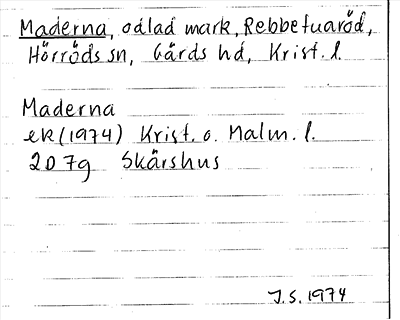 Maderna, odlad mark, Rebbetuaröd,
Hörröds sn, Gärds hd, Krist. l.
Maderna
ek (1974) Krist. o. Malm. l.
2 D 7g Skärshus
J.S. 1974